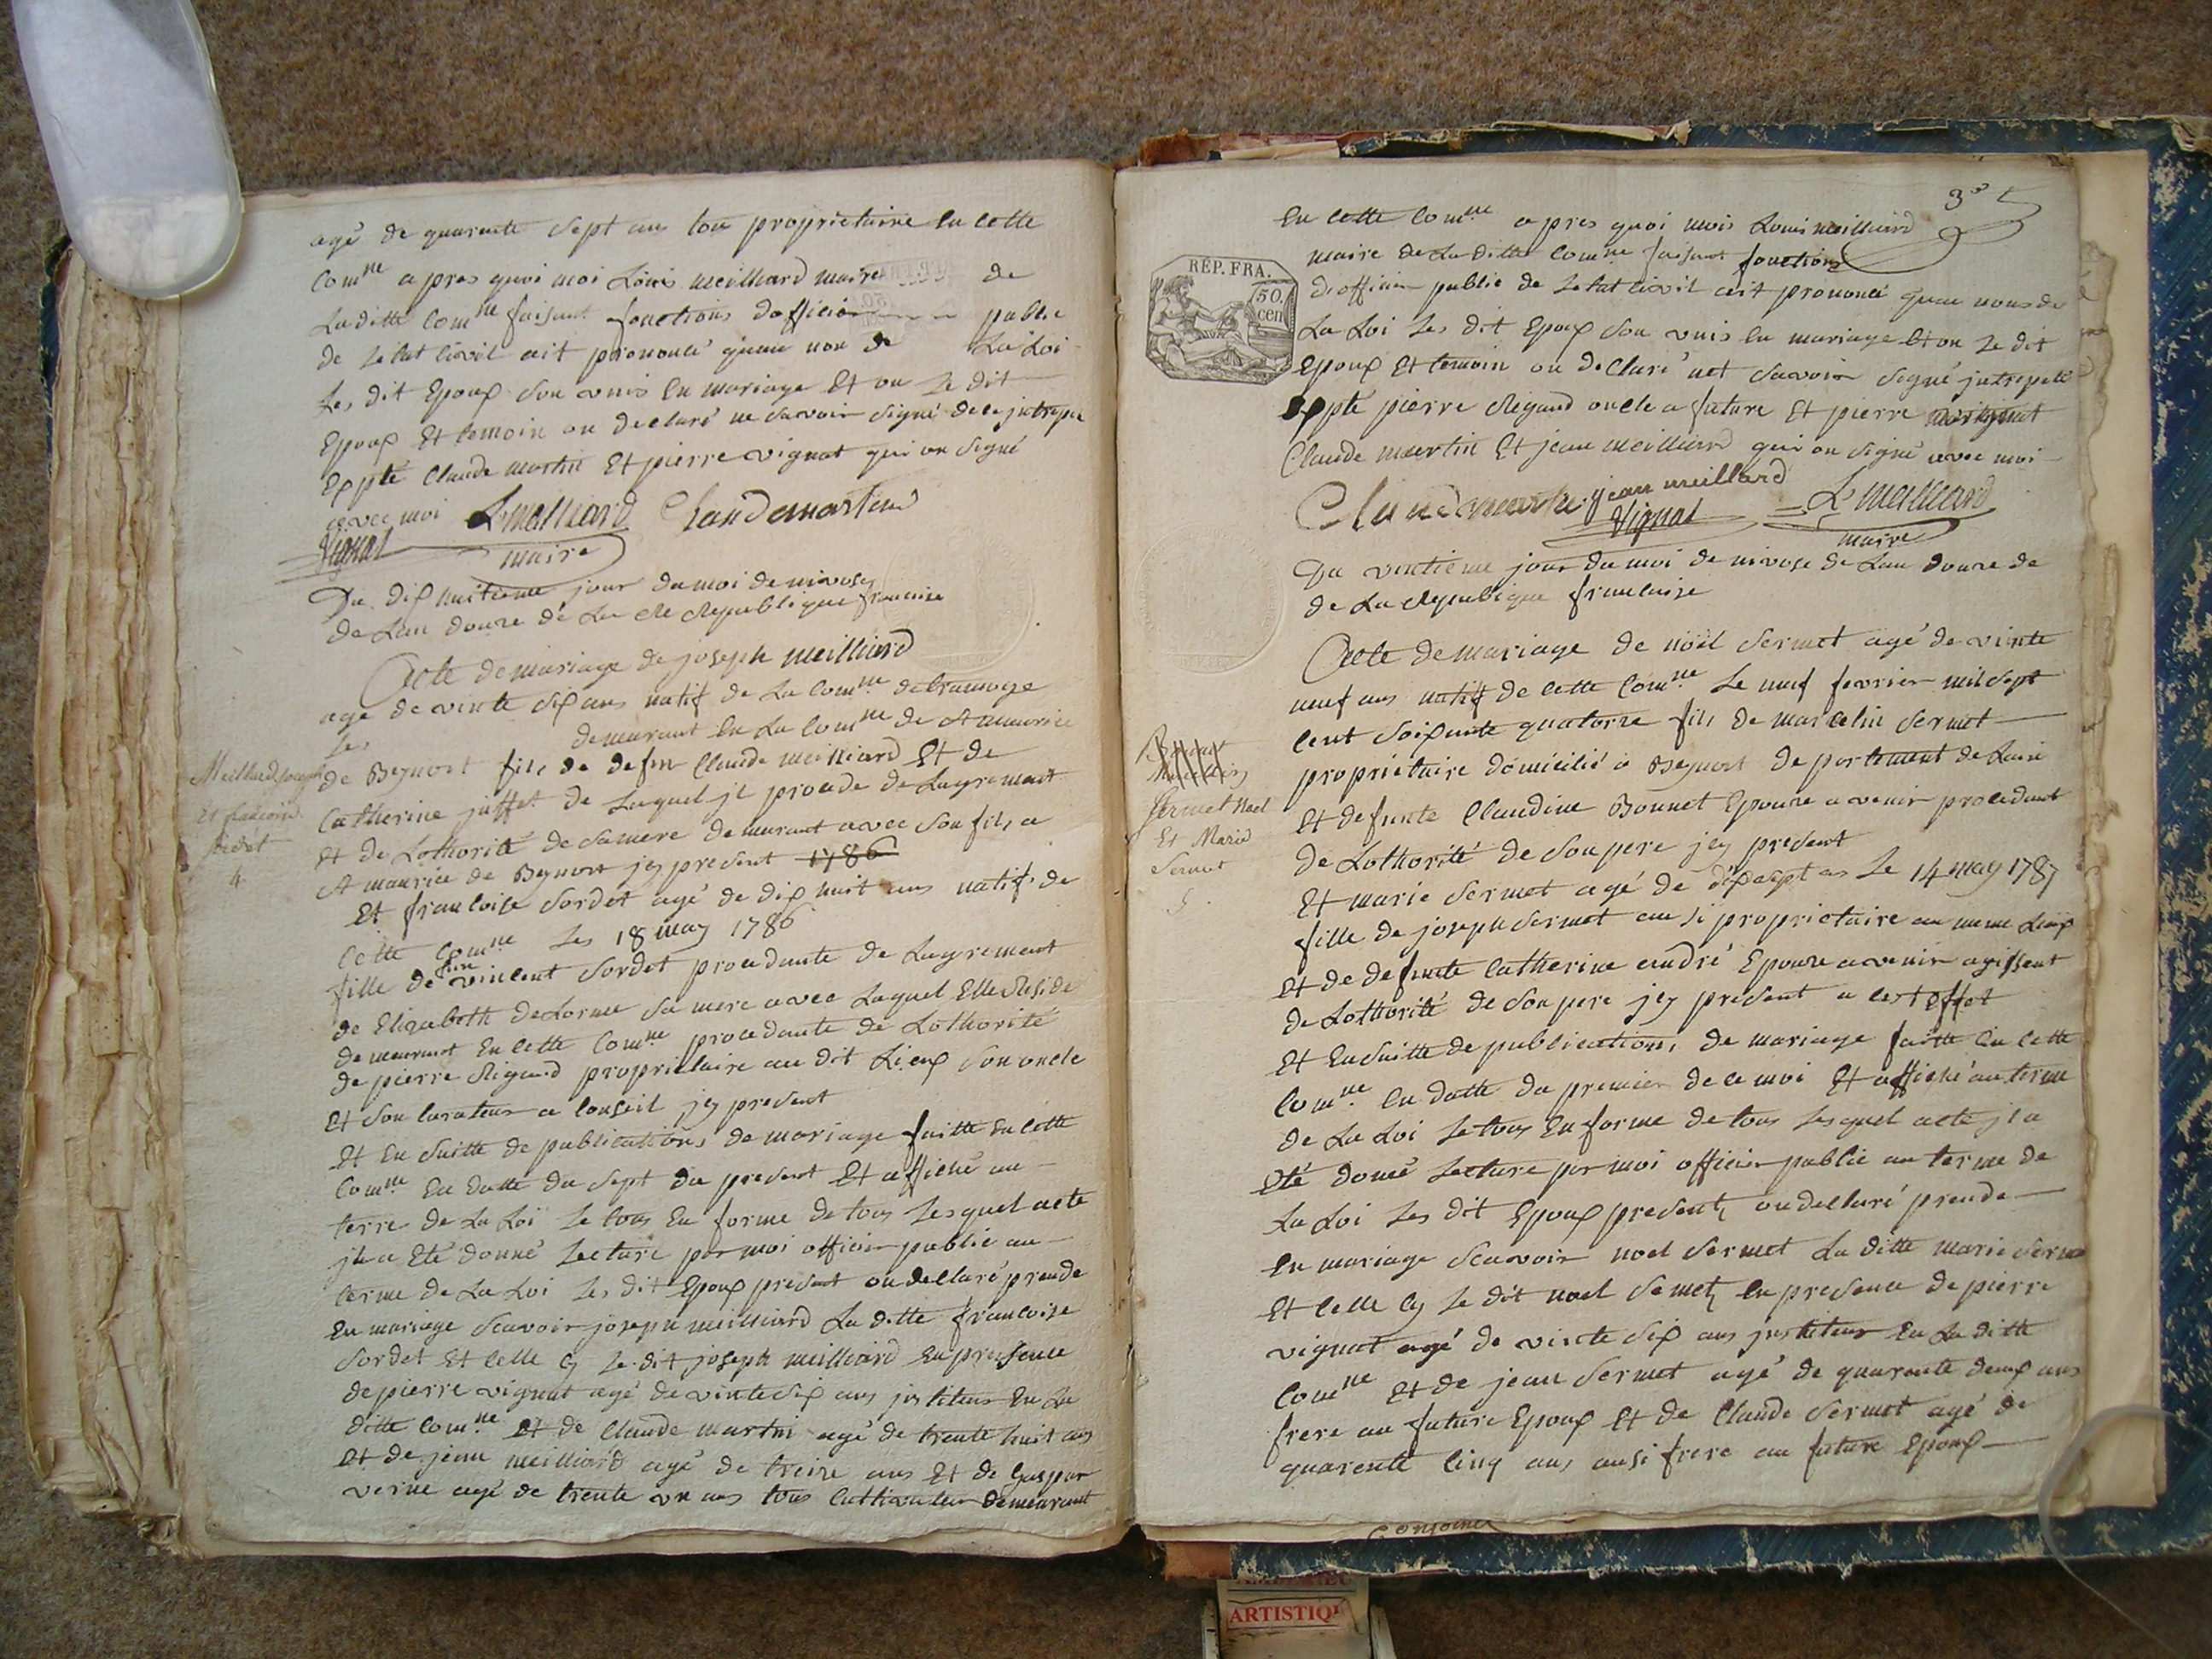 agé de quarente sept ans tou proprietaire En cette
Com.ne a pres quoi moi Louis meilliard maire de
La ditte Com.ne faisant fonctions dofficier public
de Letat Civil ait prononcé quau non de La Loi
Les dit Epoux son unis En mariage Et on Le dit
Epoux Et temoin on declaré ne savoir signé de ce
Expté Claude martin Et pierre vignat qui on signé
avec moi L meilliard Claude martin
Vignat maire
Du dix huitieme jour du moi de nivose
de Lan douze de La Republique francaise
Acte de mariage de joseph meilliard
agé de vinte six ans natif de La Com.ne de
Les demurant En La Com.ne de St maurice
de Beynost fils de defun Claude meilliard Et de
Catherine juffet de Laquel jl procede de Lagrement
Et de Lothorité de sa mere demurant avec son fils a
St maurice de Beynost jcy present 1786
Et francoise Sordet agé de dix huit ans natif de
Cette Com.ne Les 18 may 1786
fille de vincent Sordet procedante de Lagrement
de Elizabeth deLorme sa mere avec Laquel Elle Reside
demeurant En cette Com.ne procedante de Lothorité
de pierre Rigaud proprietaire au dit Lieux son oncle
Et son Curateur a Conseil jcy present
Et En suitte de publications de mariage faitte En cette
Com.ne En datte du sept du present Et affiché au
terme de La Loi Le tous En forme de tous Lesquel acte
jl a Eté donné Lecture par moi officier public au
terme de La Loi Les dit Epoux present on declaré prende
En mariage Scavoir joseph meilliard La ditte francoise
Sordet Et celle Cy Le dit joseph meilliard En presence
de pierre vignat agé de vinte six ans jnstiteur En La
ditte Com.ne Et de Claude martin agé de trente huit ans
Et de jean meilliard agé de treize ans Et de Gaspar
verne agé de trente un ans tous Cultivateur demeurant
Meilliard joseph
Et francoise
Sordet
4.
3
En cette Com.ne a pres quoi mois Louis meilliard
maire de La ditte Com.ne faisant fonctions
dofficier public de Letat Civil ait prononcé quau nons de
La Loi Les dit Epoux son unis En mariage Et on Le dit
Epoux Et temoin on declaré net savoir signé jnterpelé
Expté pierre Rigaud oncle a future Et pierre
Claude martin Et jean meilliard qui on signé avec moi
Claude martin jean meillard L meilliard
Vignat maire
REP. FRA.
50
cen
Du vintieme jour du moi de nivose de Lan douze de
de La Republique francaise
Acte de mariage de nöel Sermet agé de vinte
neuf ans natif de cette Com.ne Le neuf fevrier mil sept
cent soixante quatorze fils de marcelin Sermet
proprietaire domicilié a Beynost departement de Lain
Et defunte Claudine Bonnet Epouze avenir procedant
de Lothorité de son pere jcy present
Et marie Sermet agé de dixsept as Le 14 may 1787
fille de joseph Sermet ausi proprietaire au meme Lieux
Et de defunte Catherine andré Epouze avenir agissent
de Lothorité de son pere jcy present a cest Effet
Et En suitte de publications de mariage faitte En cette
Com.ne En datte du premier de ce moi Et affiché au terme
de La Loi Le tous En forme de tous Lesquel acte jl a
Eté donné Lecture par moi officier public au terme de
La Loi Les dit Epoux present on declaré prende
En mariage Scavoir noel Sermet La ditte marie
Et celle Cy Le dit noel Semet En presence de pierre
vignat agé de vinte six ans jnstiteur En La ditte
Com.ne Et de jean Sermet agé de quarente deux ans
frere au future Epoux Et de Claude Sermet agé de
quarente Cinq ans ausi frere au future Epoux
Sermet Noel
Et Marie
Sermet
5.
ARTISTIQ